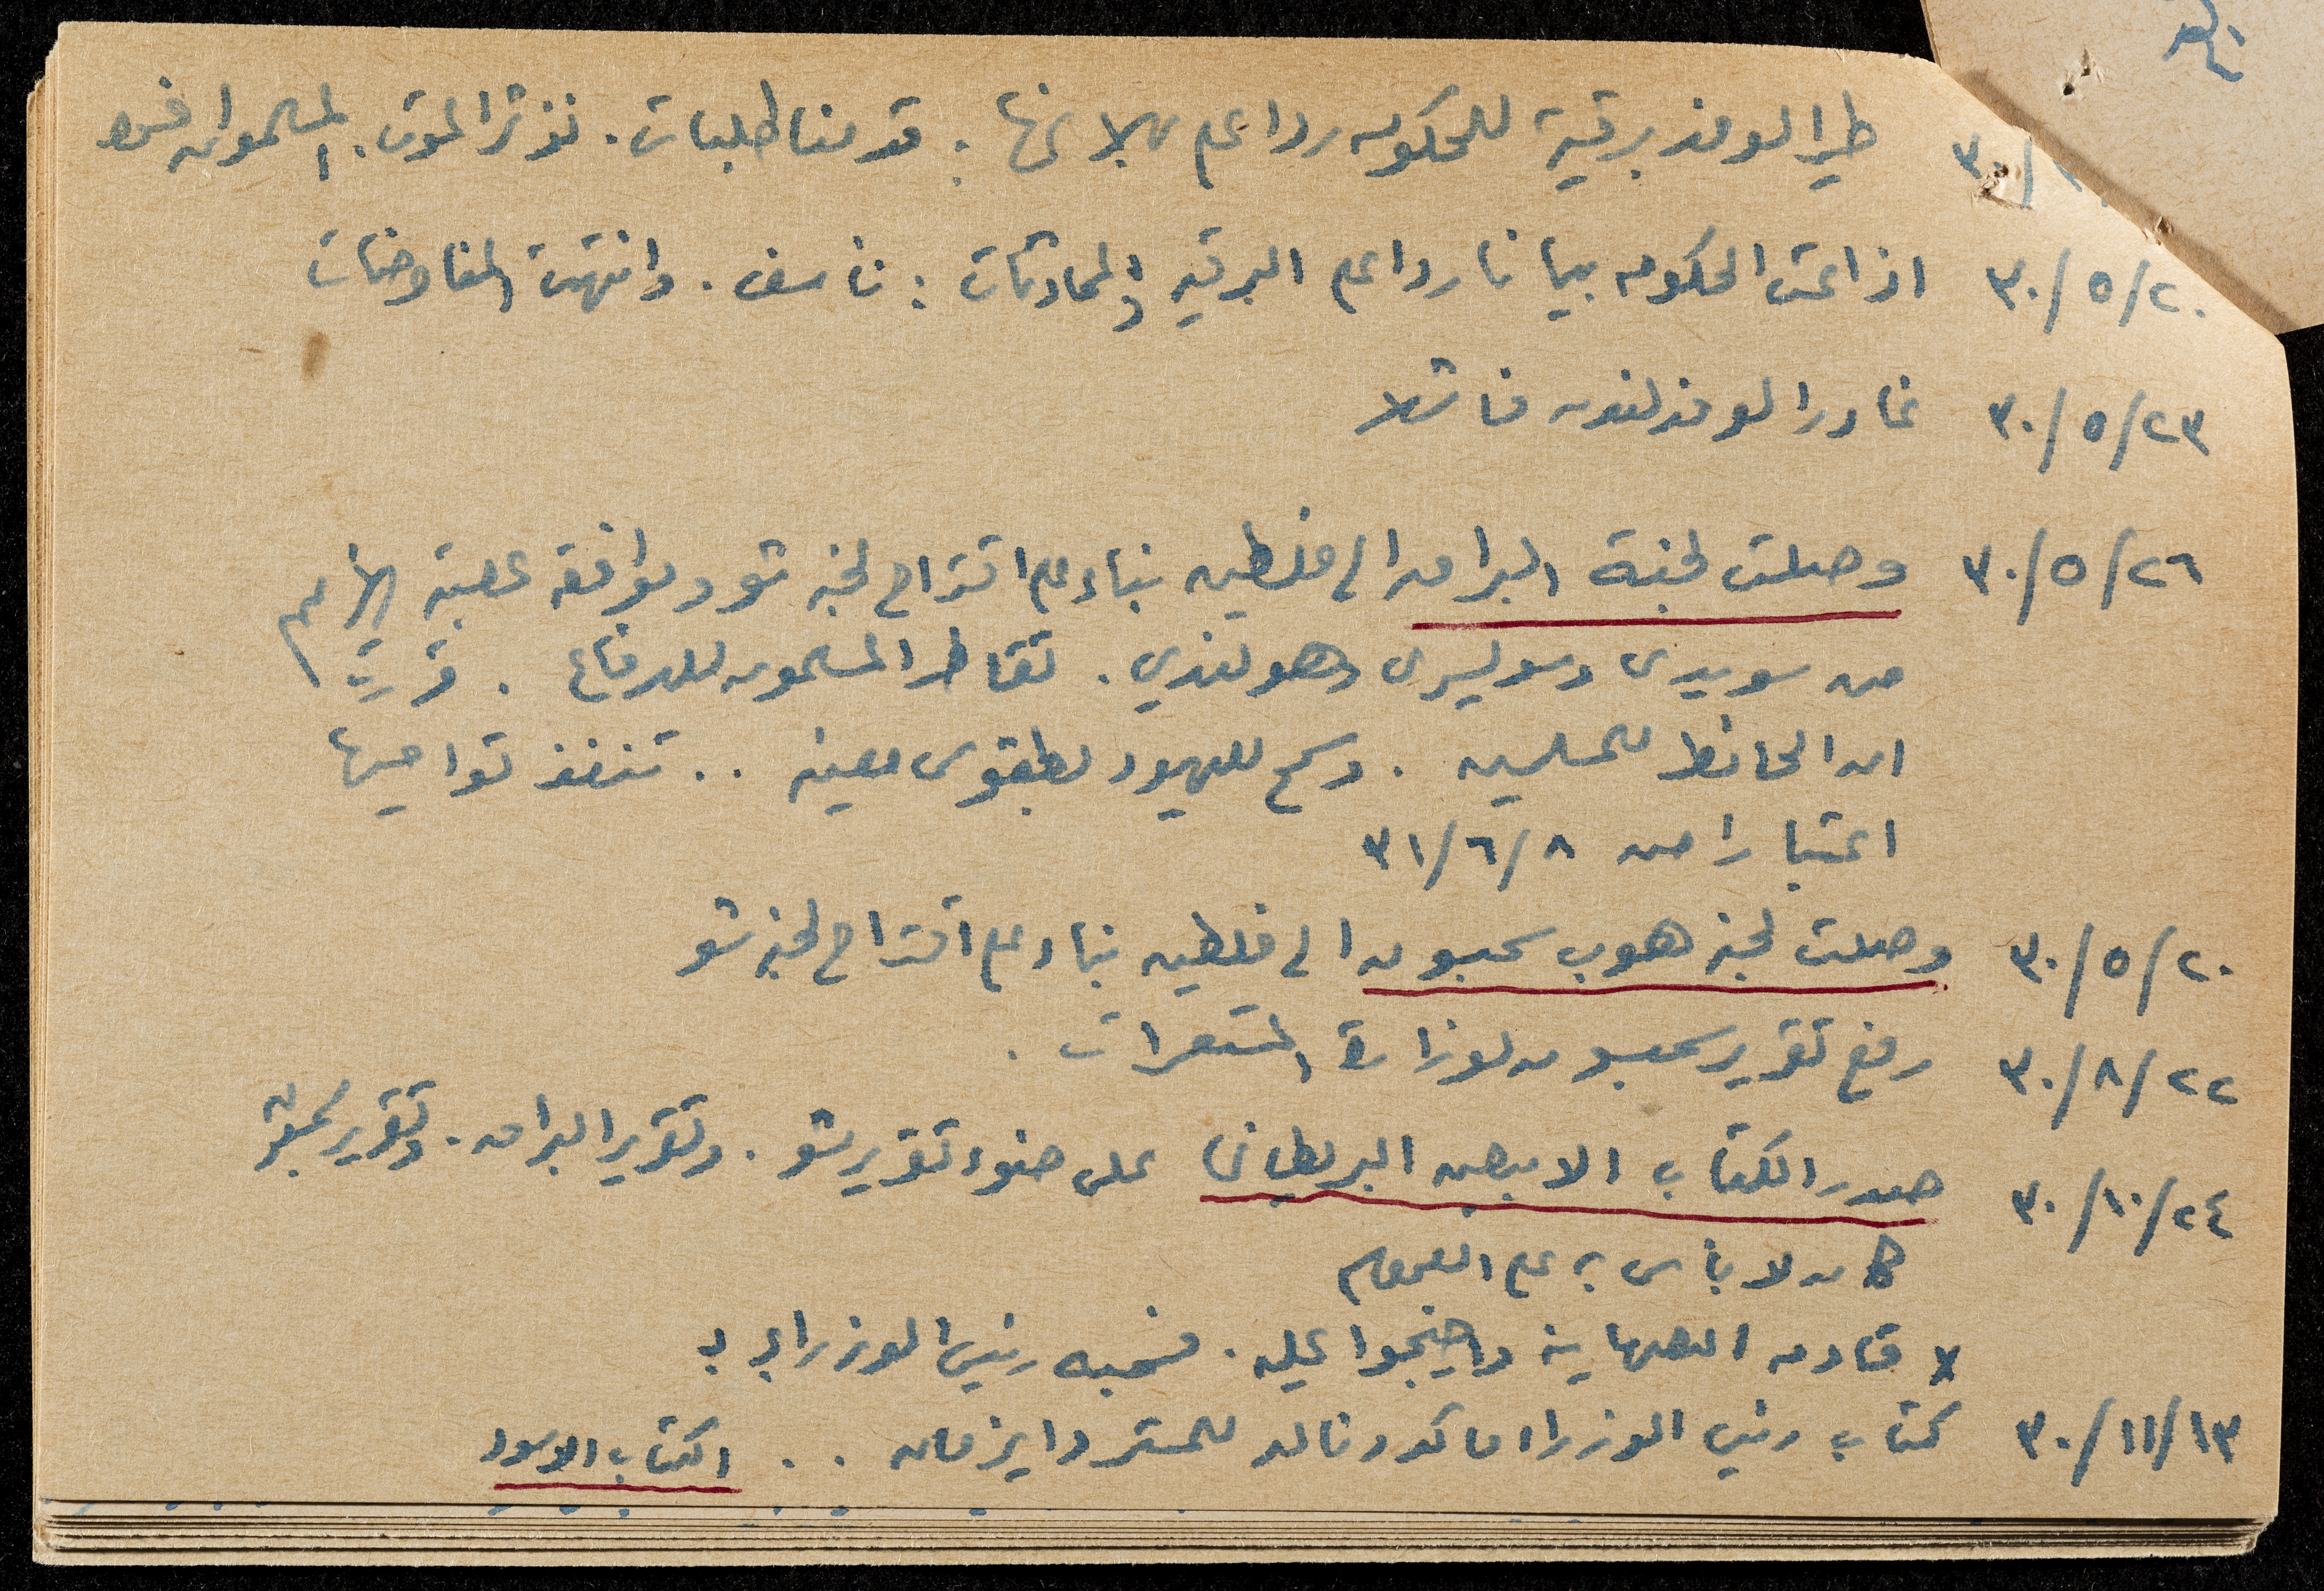 طير الوفد برقية للحكومه ردا على بلاغها: قدمنا طلبات. نؤثر الموت. المسلمون
٣٠/٥/٢٠ اذاعت الحكومه بيانا ردا على البرقيه والمحادثات: نأسف. وانتهت المفاوضات
٣٠/٥/٢٣ غادر الوفد لندن فاشلا
٣٠/٥/٢٦ وصلت لجنة البراق الى فلسطين بناء على اقتراح لجنه شو وموافقه عصبة الامم
من سويدى وسويسرى وهولندي. تقاطر المسلمون للدفاع. قررت
ان الحائط للمسلمين. وسمح لليهود بطقوس معينه .. تنفذ تواصيها
اعتبارا من ٣١/٦/٨
٣٠/٥/٢٠ وصلت لجنه هوب سمبسون الى فلسطين بناء على اقتراح لجنه شو
٣٠/٨/٢٢ رفع تقرير سمبسون لوزارة المستعمرات.
٣٠/١٠/٢٤ صدر الكتاب الابيض البريطانى على ضوء تقرير شو. وتقرير البراق. وتقرير سمبسون
كان لا بأس به على العموم
x قاومه الصهاينه واحتجوا عليه. فسحبه رئيس الوزراء بـ
٣٠/١١/١٣ كتاب رئيس الوزراء ماكدونالد للمستر وايزمان .. الكتاب الاسود